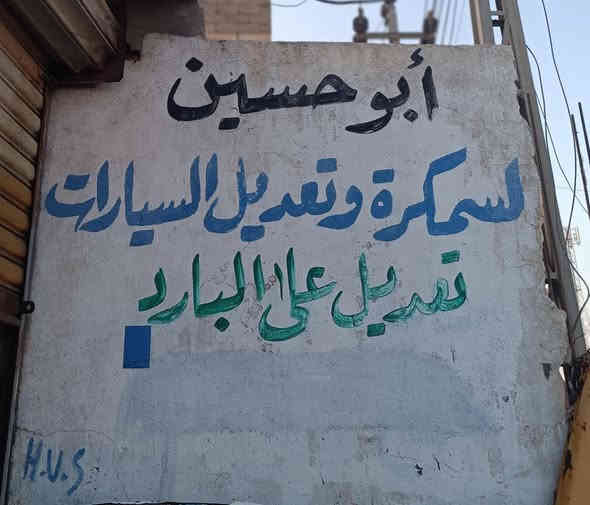 أبو حسين
لسمكرة وتعديل السيارات
تعديل على البارد
H.V.S